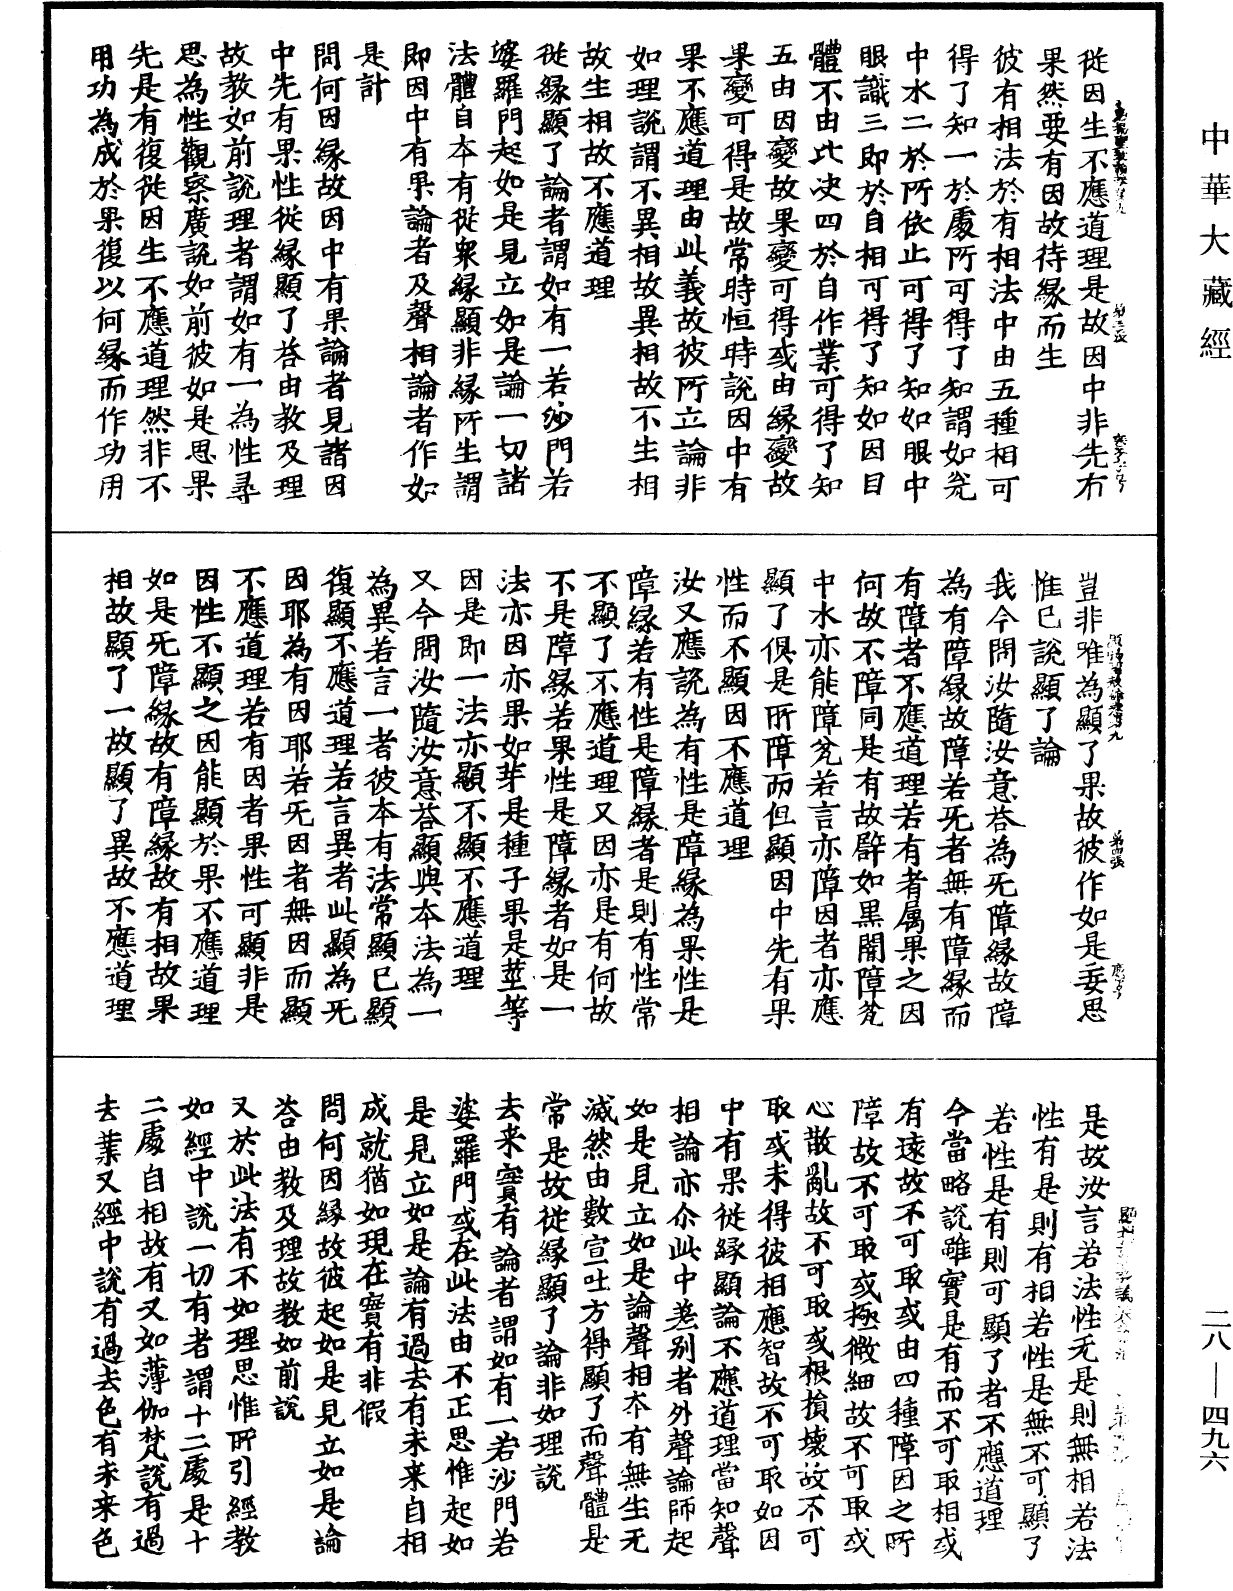 中華大藏經
從因生不應道理是故因中非先有
果然要有因故待緣而生
彼有相法於有相法中由五種相可
得了知一於處所可得了知謂如瓮
中水二於所依止可得了知如眼中
眼識三即於自相可得了知如因自
體不由比决四於自作業可得了知
五由因變故果變可得或由緣變故
果變可得是故常時恒時說因中有
果不應道理由此義故彼所立論非
如理說謂不異相故異相故不生相
故生相故不應道理
從緣顯了論者謂如有一若沙門若
婆羅門起如是見立如是論一切諸
法體自本有從衆緣顯非緣所生謂
即因中有果論者及聲相論者作如
是計
問何因緣故因中有果論者見諸因
中先有果性從緣顯了荅由教及理
故教如前說理者謂如有一為性尋
思為性觀察廣說如前彼如是思果
先是有復從因生不應道理然非不
用功為成於果復以何緣而作功用
豈非唯為顯了果故彼作如是妄思
惟已說顯了論
我今問汝隨汝意荅為无障緣故障
為有障緣故障若无者無有障緣而
有障者不應道理若有者属果之因
何故不障同是有故譬如黒闇障瓮
中水亦能障瓮若言亦障因者亦應
顯了俱是所障而但顯因中先有果
性而不顯因不應道理
汝又應說為有性是障緣為果性是
障緣若有性是障緣者是則有性常
不顯了不應道理又因亦是有何故
不是障緣若果性是障緣者如是一
法亦因亦果如芽是種子果是莖等
因是即一法亦顯不顯不應道理
又今問汝隨汝意荅顯與本法為一
為異若言一者彼本有法常顯已顯
復顯不應道理若言異者此顯為无
因耶為有因耶若无因者無因而顯
不應道理若有因者果性可顯非是
因性不顯之因能顯於果不應道理
如是无障緣故有障緣故有相故果
相故顯了一故顯了異故不應道理
是故汝言若法性无是則無相若法
性有是則有相若性是無不可顯了
若性是有則可顯了者不應道理
今當略說雖實是有而不可取相或
有遠故不可取或由四種障因之所
障故不可取或極微細故不可取或
心散亂故不可取或根損壞故不可
取或未得彼相應智故不可取如因
中有果從緣顯論不應道理當知聲
相論亦尒此中差别者外聲論師起
如是見立如是論聲相本有無生无
滅然由數宣吐方得顯了而聲體是
常是故從緣顯了論非如理說
去来實有論者謂如有一若沙門若
婆羅門或在此法由不正思惟起如
是見立如是論有過去有未来自相
成就猶如現在實有非假
問何因緣故彼起如是見立如是論
荅由教及理故教如前說
又於此法有不如理思惟所引經教
如經中說一切有者謂十二處是十
二處自相故有又如薄伽梵說有過
去業又經中說有過去色有未来色
二八—四九六